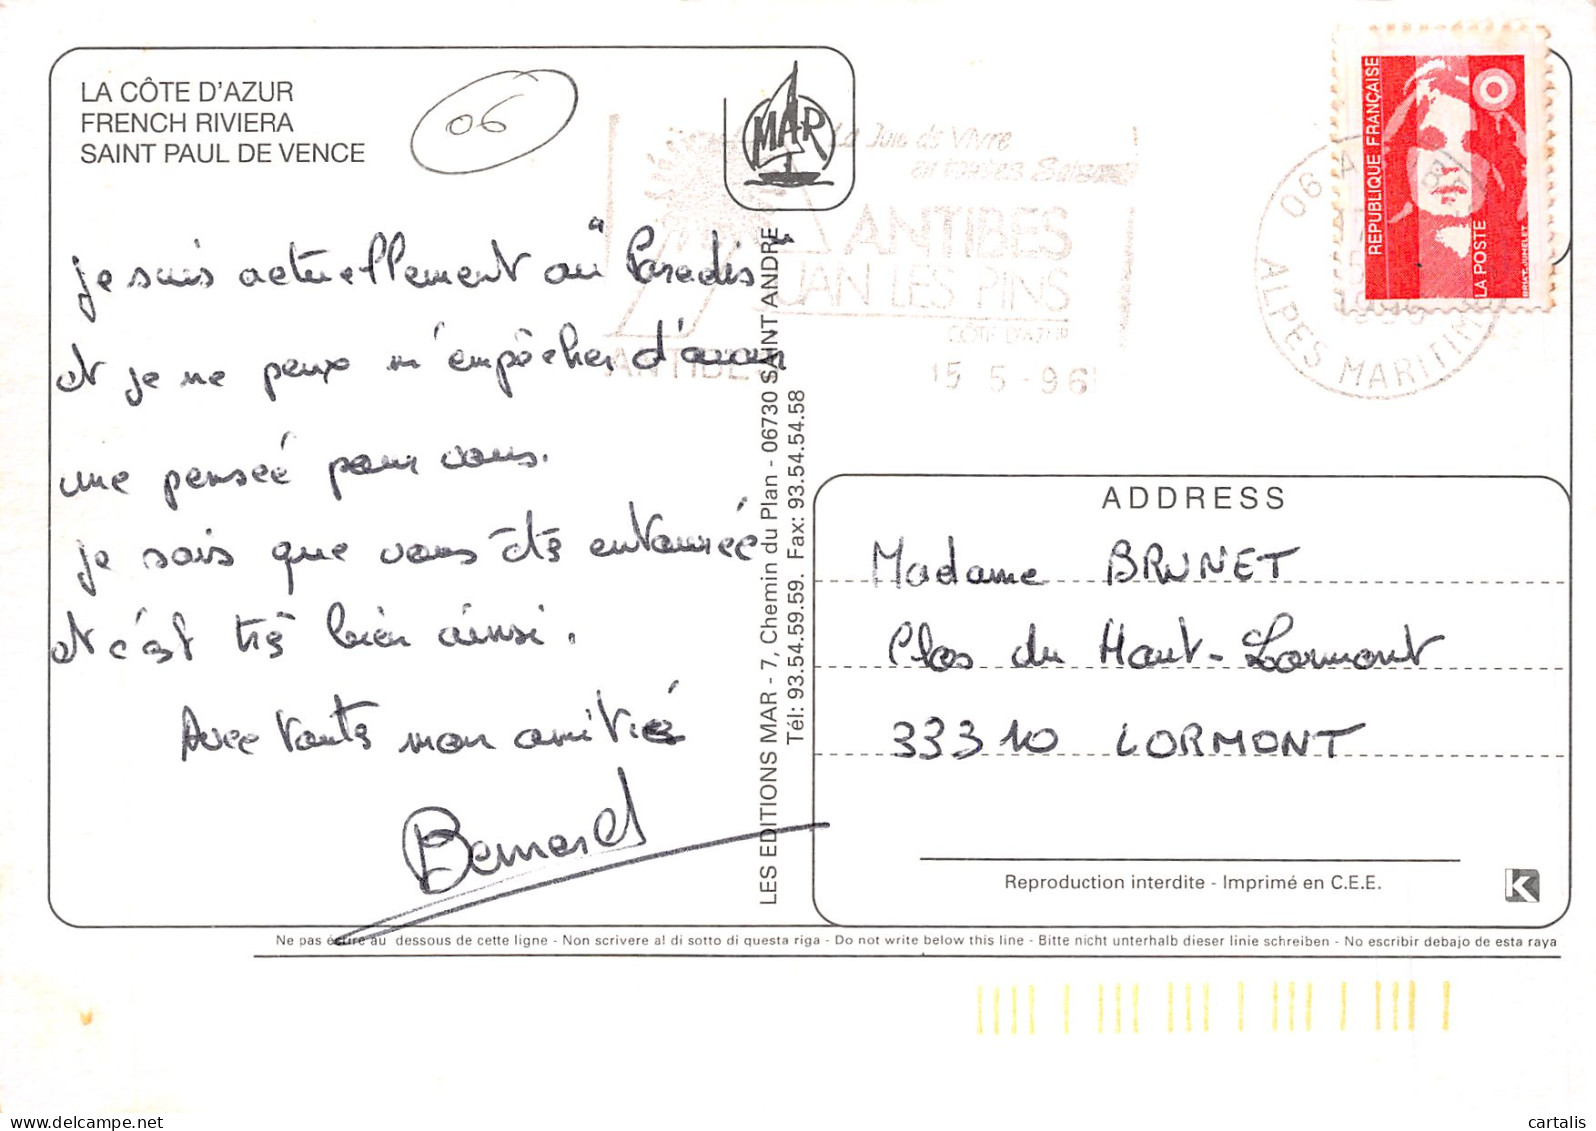 LA CÔTE D'AZUR
FRENCH RIVIERA
SAINT PAUL DE VENCE
06
MAR
La Joie de Vivre
en toutes Saisons
ANTIBES
JUAN LES PINS
CÔTE D'AZUR
ANTIBES
15 5 - 96
06 A
ALPES MARITIM
REPUBLIQUE FRANÇAISE
LA POSTE
BRIAT-JUMELET
je suis actuellement au "Paradis"
et je ne peux m'empêcher d'avoir
une penseé pour vous.
je sais que vous êtes entoureé
et c'est très bien ainsi.
Avec toute mon amitiés
Bernard
LES EDITIONS MAR - 7, Chemin du Plan - 06730 SAINT ANDRÉ
Tél: 93.54.59.59. Fax: 93.54.54.58
ADDRESS
Madame BRUNET
Clos du Haut-Lormont
33310 LORMONT
Reproduction interdite - Imprimé en C.E.E.
K
Ne pas écrire au dessous de cette ligne - Non scrivere al di sotto di questa riga - Do not write below this line - Bitte nicht unterhalb dieser linie schreiben - No escribir debajo de esta raya
cartalis